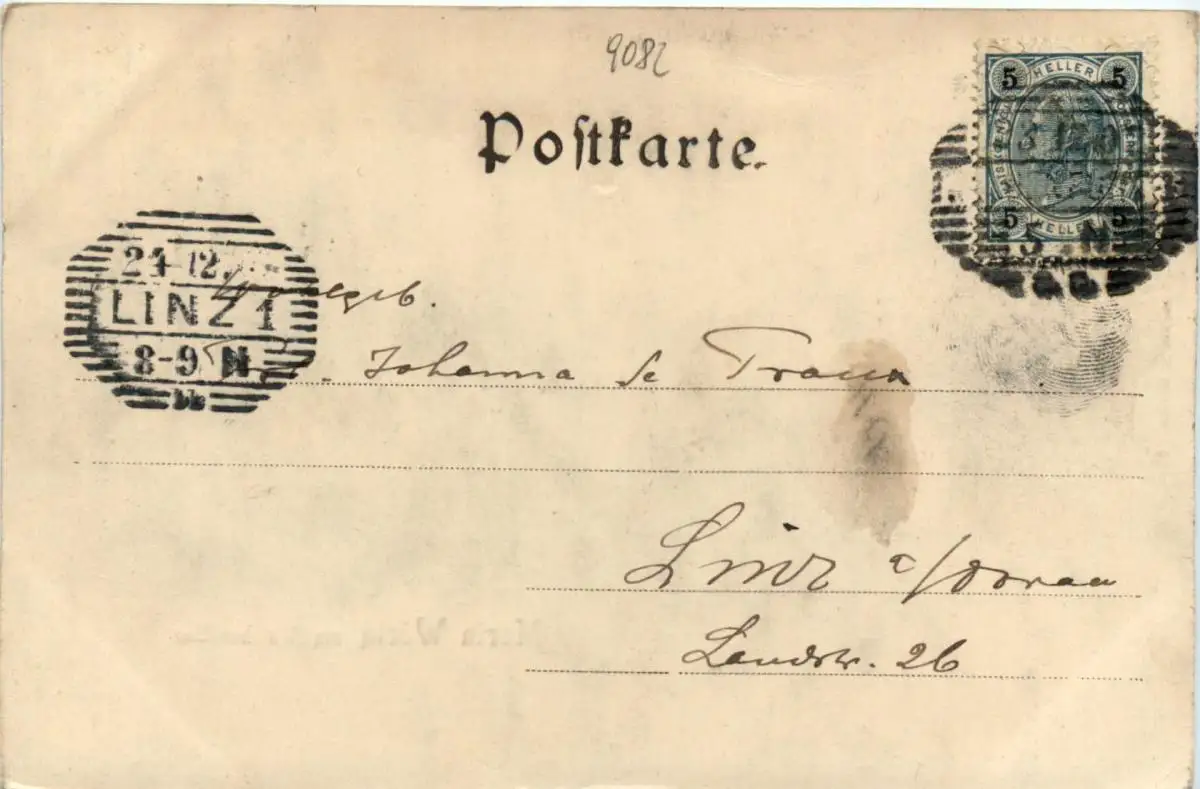 9082
Postkarte.
5 HELLER 5
5 HELLER 5
24 12.
LINZ 1
8-9 N
Johanna de Traux
Linz a/Donau
Landstr. 26